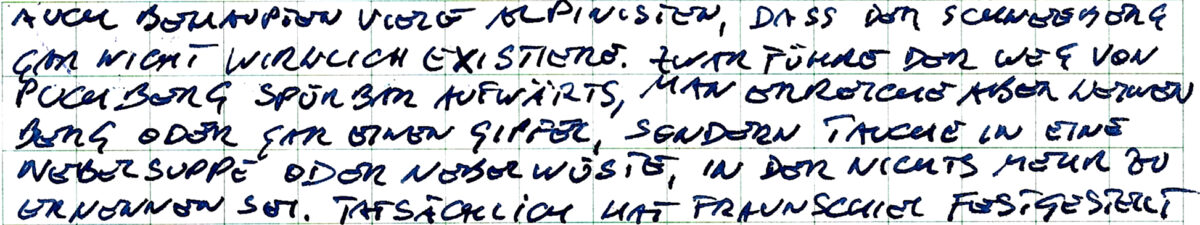 AUCH BEHAUPTEN VIELE ALPINISTEN, DASS DER SCHNEEBERG
GAR NICHT WIRKLICH EXISTIERE. ZWAR FÜHRE DER WEG VON
PUCHBERG SPÜRBAR AUFWÄRTS, MAN ERREICHE ABER KEINEN
BERG ODER GAR EINEN GIPFEL, SONDERN TAUCHE IN EINE
NEBELSUPPE ODER NEBELWÜSTE, IN DER NICHTS MEHR ZU
ERKENNEN SEI. TATSÄCHLICH HAT FRAUNSCHIEL FESTGESTELLT